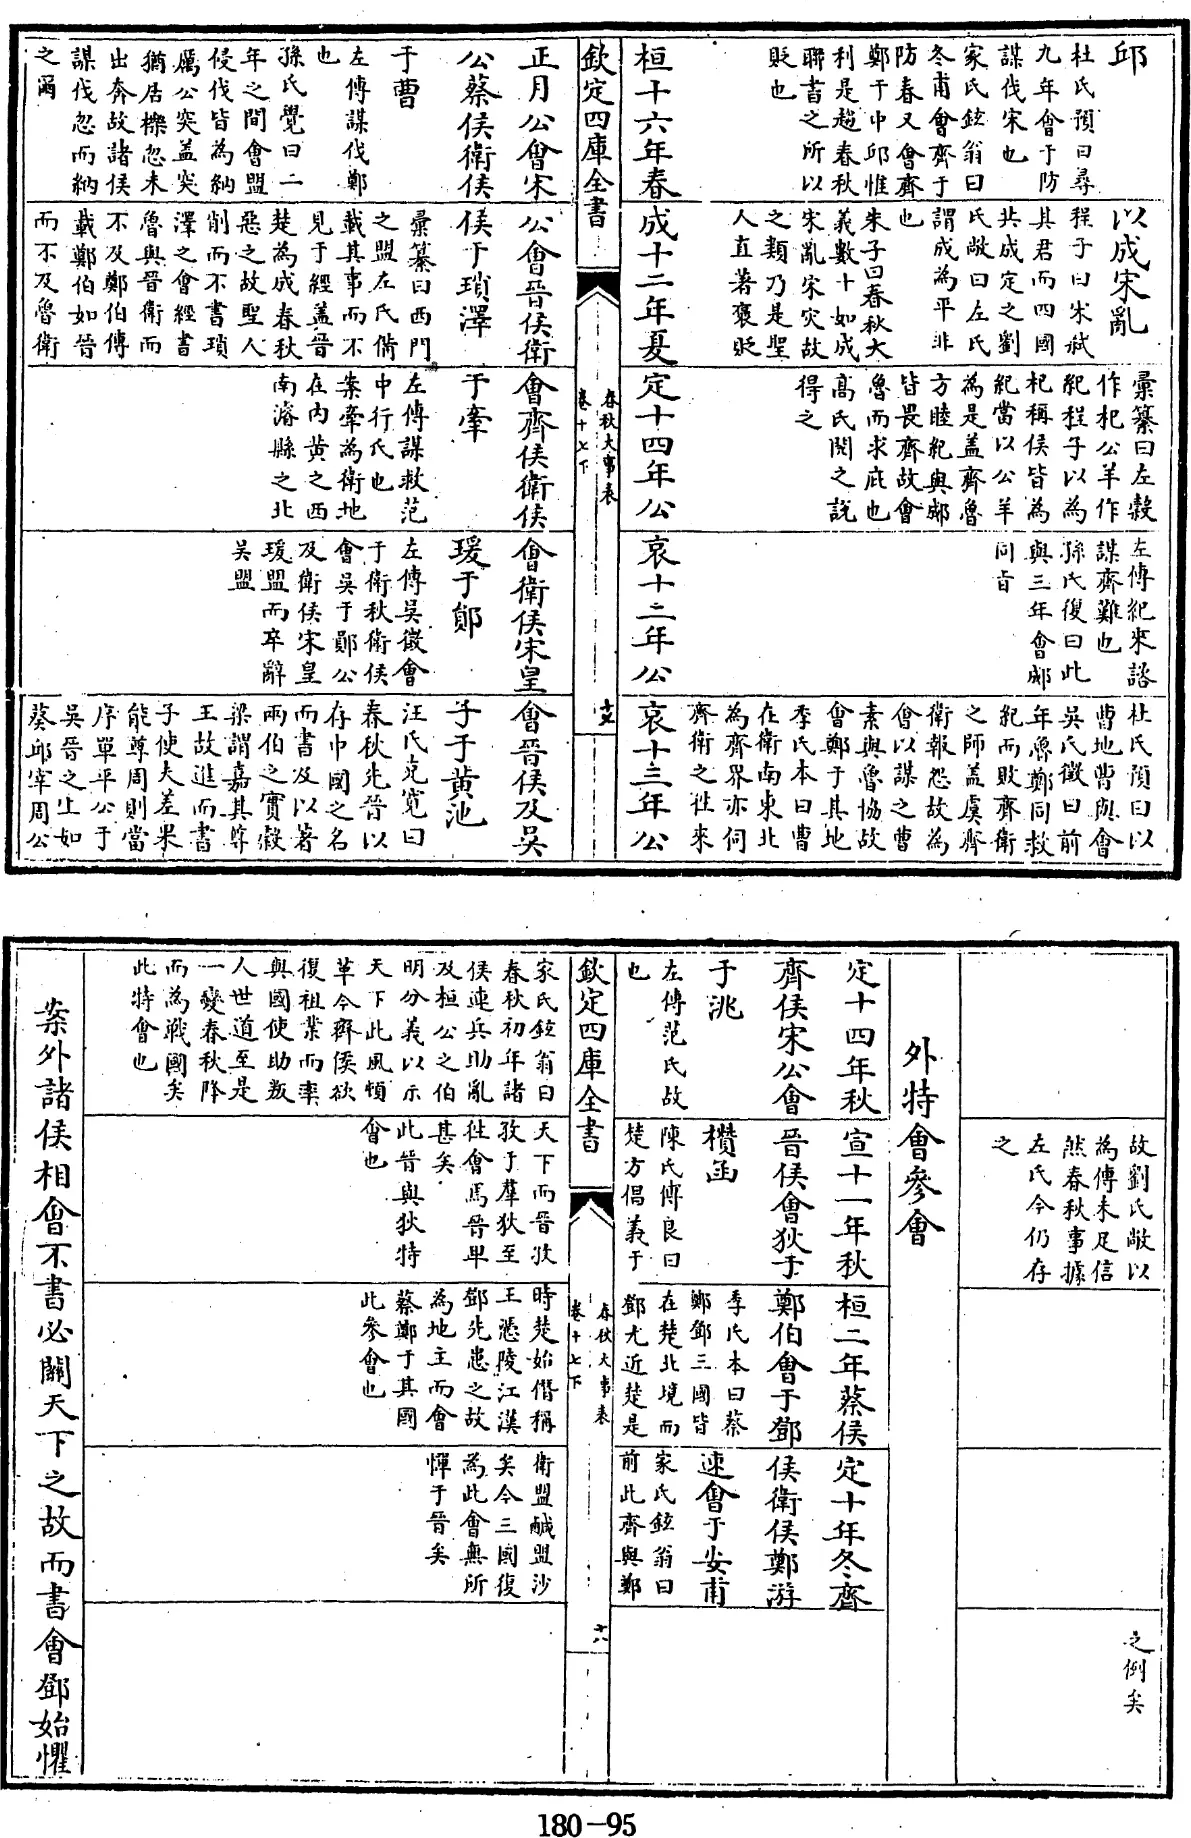 邱
杜氏預曰尋
九年會于防
謀伐宋也
家氏鉉翁曰
冬甫會齊于
防春又會齊
鄭于中邱惟
利是趨春秋
聯書之所以
貶也
桓十六年春
以成宋亂
程子曰宋弑
其君而四國
共成定之劉
氏敞曰左氏
謂成為平非
也
朱子曰春秋大
義數十如成
宋亂宋災故
之類乃是聖
人直著褒貶
成十二年夏
彙纂曰左榖
作杞公羊作
紀程子以為
杞稱侯皆為
紀當以公羊
為是蓋齊魯
方睦紀與郕
皆畏齊故會
魯而求庇也
高氏閌之說
得之
定十四年公
左傳紀來諮
謀齊難也
孫氏復曰此
與三年會郕
同旨
哀十二年公
杜氏預曰以
曹地曹與會
吳氏徵曰前
年魯鄭同救
紀而敗齊衛
之師蓋虞齊
衛報怨故為
會以謀之曹
素與魯協故
會鄭于其地
季氏本曰曹
在衛南東北
為齊界亦伺
齊衛之往來
哀十三年公
欽定四庫全書
春秋大事表
卷十七下
正月公會宋
公蔡侯衛侯
于曹
左傳謀伐鄭
也
孫氏覺曰二
年之間會盟
侵伐皆為納
厲公突蓋突
猶居櫟忽未
出奔故諸侯
謀伐忽而納
之爾
公會晉侯衛
侯于瑣澤
彙纂曰西門
之盟左氏備
載其事而不
見于經蓋晉
楚為成春秋
惡之故聖人
削而不書瑣
澤之會經書
魯與晉衛而
不及鄭伯傳
載鄭伯如晉
而不及魯衛
會齊侯衛侯
于牽
左傳謀救范
中行氏也
案牽為衛地
在內黃之西
南濬縣之北
會衛侯宋皇
瑗于鄖
左傳吳徵會
于衛秋衛侯
會吳于鄖公
及衛侯宋皇
瑗盟而卒辭
吳盟
會晉侯及吳
子于黃池
汪氏克寬曰
春秋先晉以
存中國之名
而書及以著
兩伯之實榖
梁謂嘉其尊
王故進而書
子使夫差果
能尊周則當
序單平公于
吳晉之上如
葵邱宰周公
故劉氏敞以
為傳未足信
然春秋事據
左氏今仍存
之
之例矣
外特會參會
定十四年秋
齊侯宋公會
于洮
左傳范氏故
也
宣十一年秋
晉侯會狄于
欑函
陳氏傅良曰
楚方倡義于
桓二年蔡侯
鄭伯會于鄧
季氏本曰蔡
鄭鄧三國皆
在楚北境而
鄧尤近楚是
定十年冬齊
侯衛侯鄭游
速會于安甫
家氏鉉翁曰
前此齊與鄭
欽定四庫全書
春秋大事表
卷十七下
十六
家氏鉉翁曰
春秋初年諸
侯連兵助亂
及桓公之伯
明分義以示
天下此風頓
革今齊侯欲
復祖業而率
與國使助叛
人世道至是
一變春秋降
而為戰國矣
此特會也
天下而晉汲
孜于羣狄至
往會焉晉卑
甚矣
此晉與狄特
會也
時楚始僭稱
王憑陵江漢
鄧先患之故
為地主而會
蔡鄭于其國
此參會也
衛盟鹹盟沙
矣今三國復
為此會無所
憚于晉矣
案外諸侯相會不書必關天下之故而書會鄧始懼
180-95